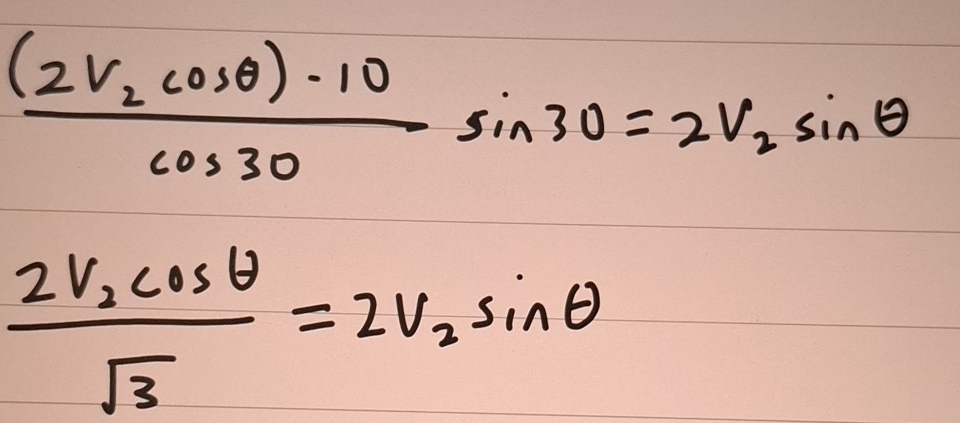 (2V₂ cosθ) - 10 / cos 30 sin 30 = 2V₂ sin θ
2V₂ cos θ / √3 = 2V₂ sin θ